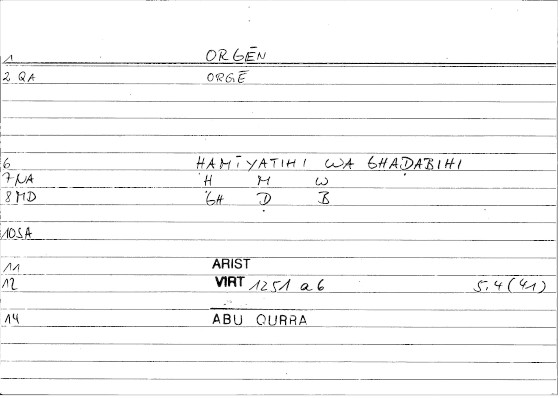 1 ORGĒN
2 QA ORGĒ
6 ḤAMĪYATIHI WA GHAḌABIHI
7 NA Ḥ M W
8 MD GH Ḍ B
10 SA
11 ARIST
12 VIRT 1251 a 6 5,4 (41)
14 ABU QURRA